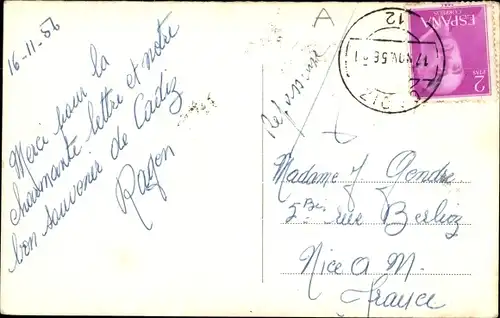 16-11-56
Merci pour la
charmante lettre et notre
bon souvenir de Cadiz
A
ESPAÑA
CORREOS
2
PTAS
12
17 NOV. 56
Madame J Gendre
5 Bis rue Berlioz
Nice A M.
France